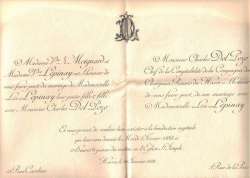 Madame Vve L. Meignard et
Madame Vve Lépinay ont l'honneur de
vous faire part du mariage de Mademoiselle
Léa Lépinay leur petite fille & fille
avec Monsieur Charles Del Pozo
Monsieur Charles Del Pozo
Chef de la Comptabilité de la Compagnie des
Chargeurs Réunis du Havre a l'honneur
de vous faire part de son mariage avec
Mademoiselle Léa Lépinay
Et vous prient de vouloir bien assister à la bénédiction nuptiale
qui leur sera donnée le Mardi
en l'Eglise St Joseph
Havre, le
Rue de la Paix